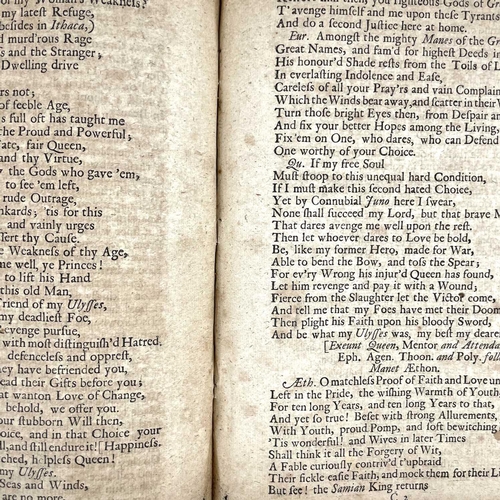 my latest Refuge,
besides in Ithaca,)
d murd'rous Rage
s and the Stranger;
Dwelling drive
rs not;
of feeble Age,
s full oft has taught me
the Proud and Powerful;
ate, fair Queen,
and thy Virtue,
the Gods who gave 'em,
to see 'em left,
rude Outrage,
nkards; 'tis for this
and vainly urges
ssert thy Cause.
e Weakness of thy Age,
me well, ye Princes!
to lift his Hand
this old Man,
riend of my Ulysses,
my deadliest Foe,
evenge pursue,
with most distinguish'd Hatred.
defenceless and opprest,
hey have befriended you,
ead their Gifts before you;
at wanton Love of Change,
behold, we offer you.
our stubborn Will then,
oice, and in that Choice your
ll, and still endure it! [Happiness.
tched, helpless Queen!
my Ulysses.
Seas and Winds,
are no more.
T'avenge himself and me upon these Tyrants
And do a second Justice here at home.
Eur. Amongst the mighty Manes of the Gr
Great Names, and fam'd for highest Deeds in
His honour'd Shade rests from the Toils of L
In everlasting Indolence and Ease,
Careless of all your Pray'rs and vain Complain
Which the Winds bear away, and scatter in their W
Turn those bright Eyes then, from Despair an
And fix your better Hopes among the Living,
Fix 'em on One, who dares, who can Defend
One worthy of your Choice.
Qu. If my free Soul
Must stoop to this unequal hard Condition,
If I must make this second hated Choice,
Yet by Connubial Juno here I swear,
None shall succeed my Lord, but that brave M
That dares avenge me well upon the rest.
Then let whoever dares to Love be bold,
Be, like my former Hero, made for War,
Able to bend the Bow, and toss the Spear;
For ev'ry Wrong his injur'd Queen has found,
Let him revenge and pay it with a Wound;
Fierce from the Slaughter let the Victor come,
And tell me that my Foes have met their Doom
Then plight his Faith upon his bloody Sword,
And be what my Ulysses was, my best my deare
[Exeunt Queen, Mentor and Attenda
Eph. Agen. Thoon. and Poly. foll
Manet Æthon.
Æth. O matchless Proof of Faith and Love un
Left in the Pride, the wishing Warmth of Youth
For ten long Years, and ten long Years to that,
And yet so true! Beset with strong Allurements,
With Youth, proud Pomp, and soft bewitching
'Tis wonderful! and Wives in later Times
Shall think it all the Forgery of Wit,
A Fable curiously contriv'd t'upbraid
Their fickle easie Faith, and mock them for their Li
But see! the Samian King returns